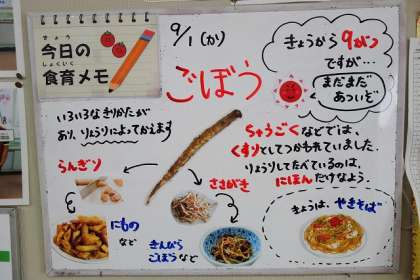 きょう
今日の
しょくいく
食育メモ
9/1(か)
ごぼう
きょうから9がつ
ですが…
まだまだ
あついぞ
いろいろなきりかたが
あり、りょうりによってかえます
らんぎり
ささがき
にもの
など
きんぴら
ごぼうなど
ちゅうごくなどでは、
くすりとしてつかわれていました。
りょうりしてたべているのは、
にほんだけなよう。
きょうは、やきそば